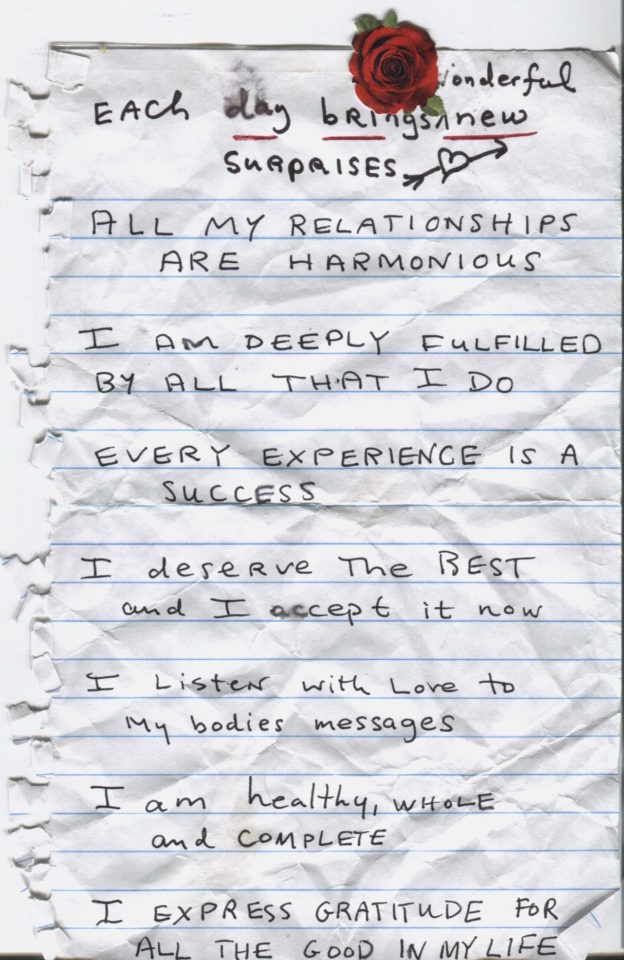 wonderful
EACh day brings ^ new
SURPRISES
ALL MY RELATIONSHIPS
ARE HARMONIOUS
I AM DEEPLY FULFILLED
BY ALL THAT I DO
EVERY EXPERIENCE IS A
SUCCESS
I deserve The BEST
and I accept it now
I Listen with Love to
My bodies messages
I am healthy, WHOLE
and COMPLETE
I EXPRESS GRATITUDE FOR
ALL THE GOOD IN MY LIFE